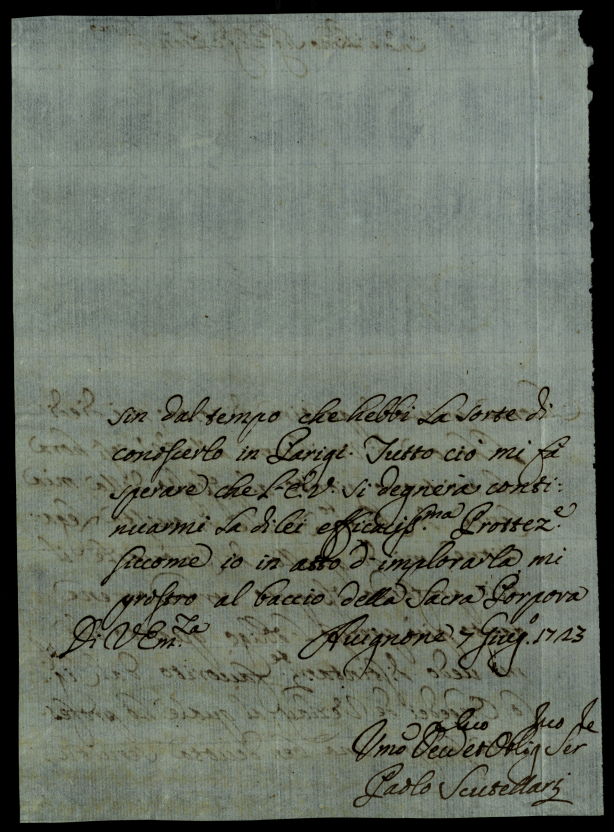 sin dal tempo che hebbi La sorte di
conoscerlo in Parigi. Tutto ciò mi fà
sperare che L'E.V. si degnerà conti:
nuarmi La di lei efficaliss.ma Prottez.e
siccome io in atto d'implorarla mi
prostro al baccio della Sacra Porpora
Di V Em.za Avignone 7 Giug.o 1723
Umo Devo et Obligmo Ser
Paolo Scutellarj